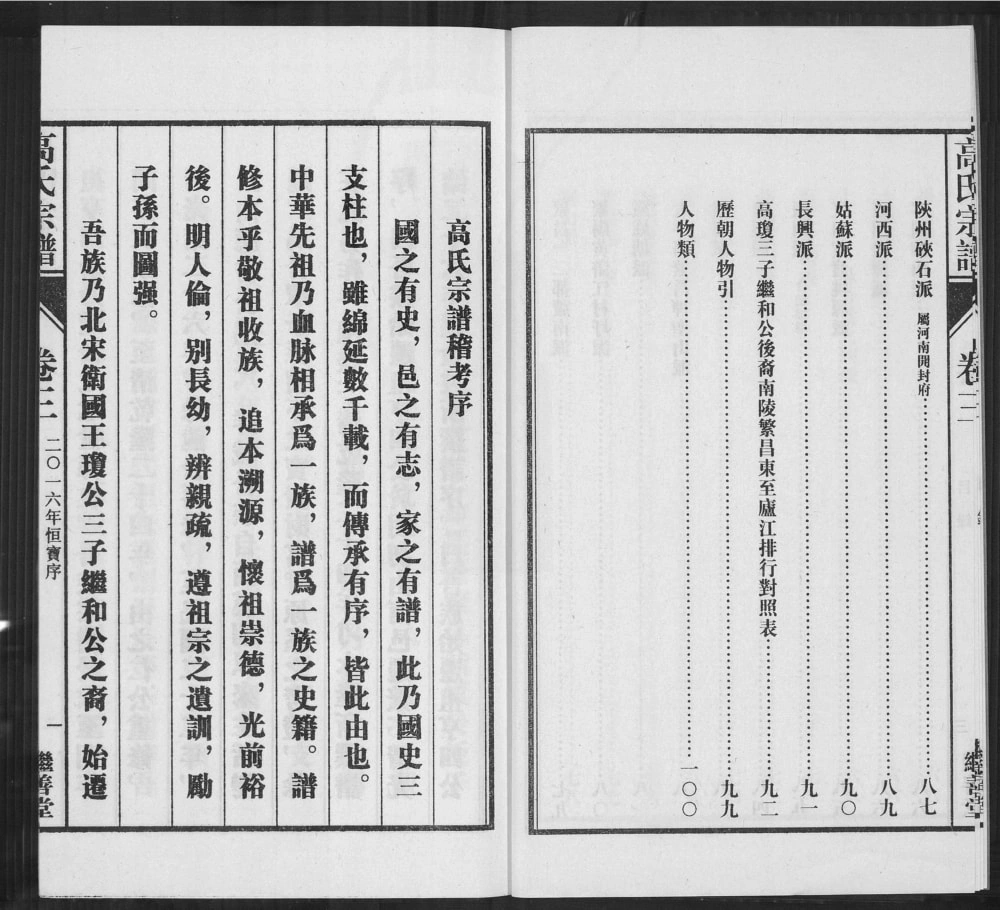 高氏宗譜 卷三 繼善堂
陝州硤石派 屬河南開封府 八七
河西派 八九
姑蘇派 九〇
長興派 九一
高瓊三子繼和公後裔南陵繁昌東至廬江排行對照表 九二
歷朝人物引 九九
人物類 一〇〇
高氏宗譜稽考序
國之有史，邑之有志，家之有譜，此乃國史三
支柱也，雖綿延數千載，而傳承有序，皆此由也。
中華先祖乃血脉相承爲一族，譜爲一族之史籍。譜
修本乎敬祖收族，追本溯源，懷祖崇德，光前裕
後。明人倫，别長幼，辨親疏，遵祖宗之遺訓，勵
子孫而圖强。
吾族乃北宋衛國王瓊公三子繼和公之裔，始遷
高氏宗譜 卷三 二〇一六年恒寶序 一 繼善堂